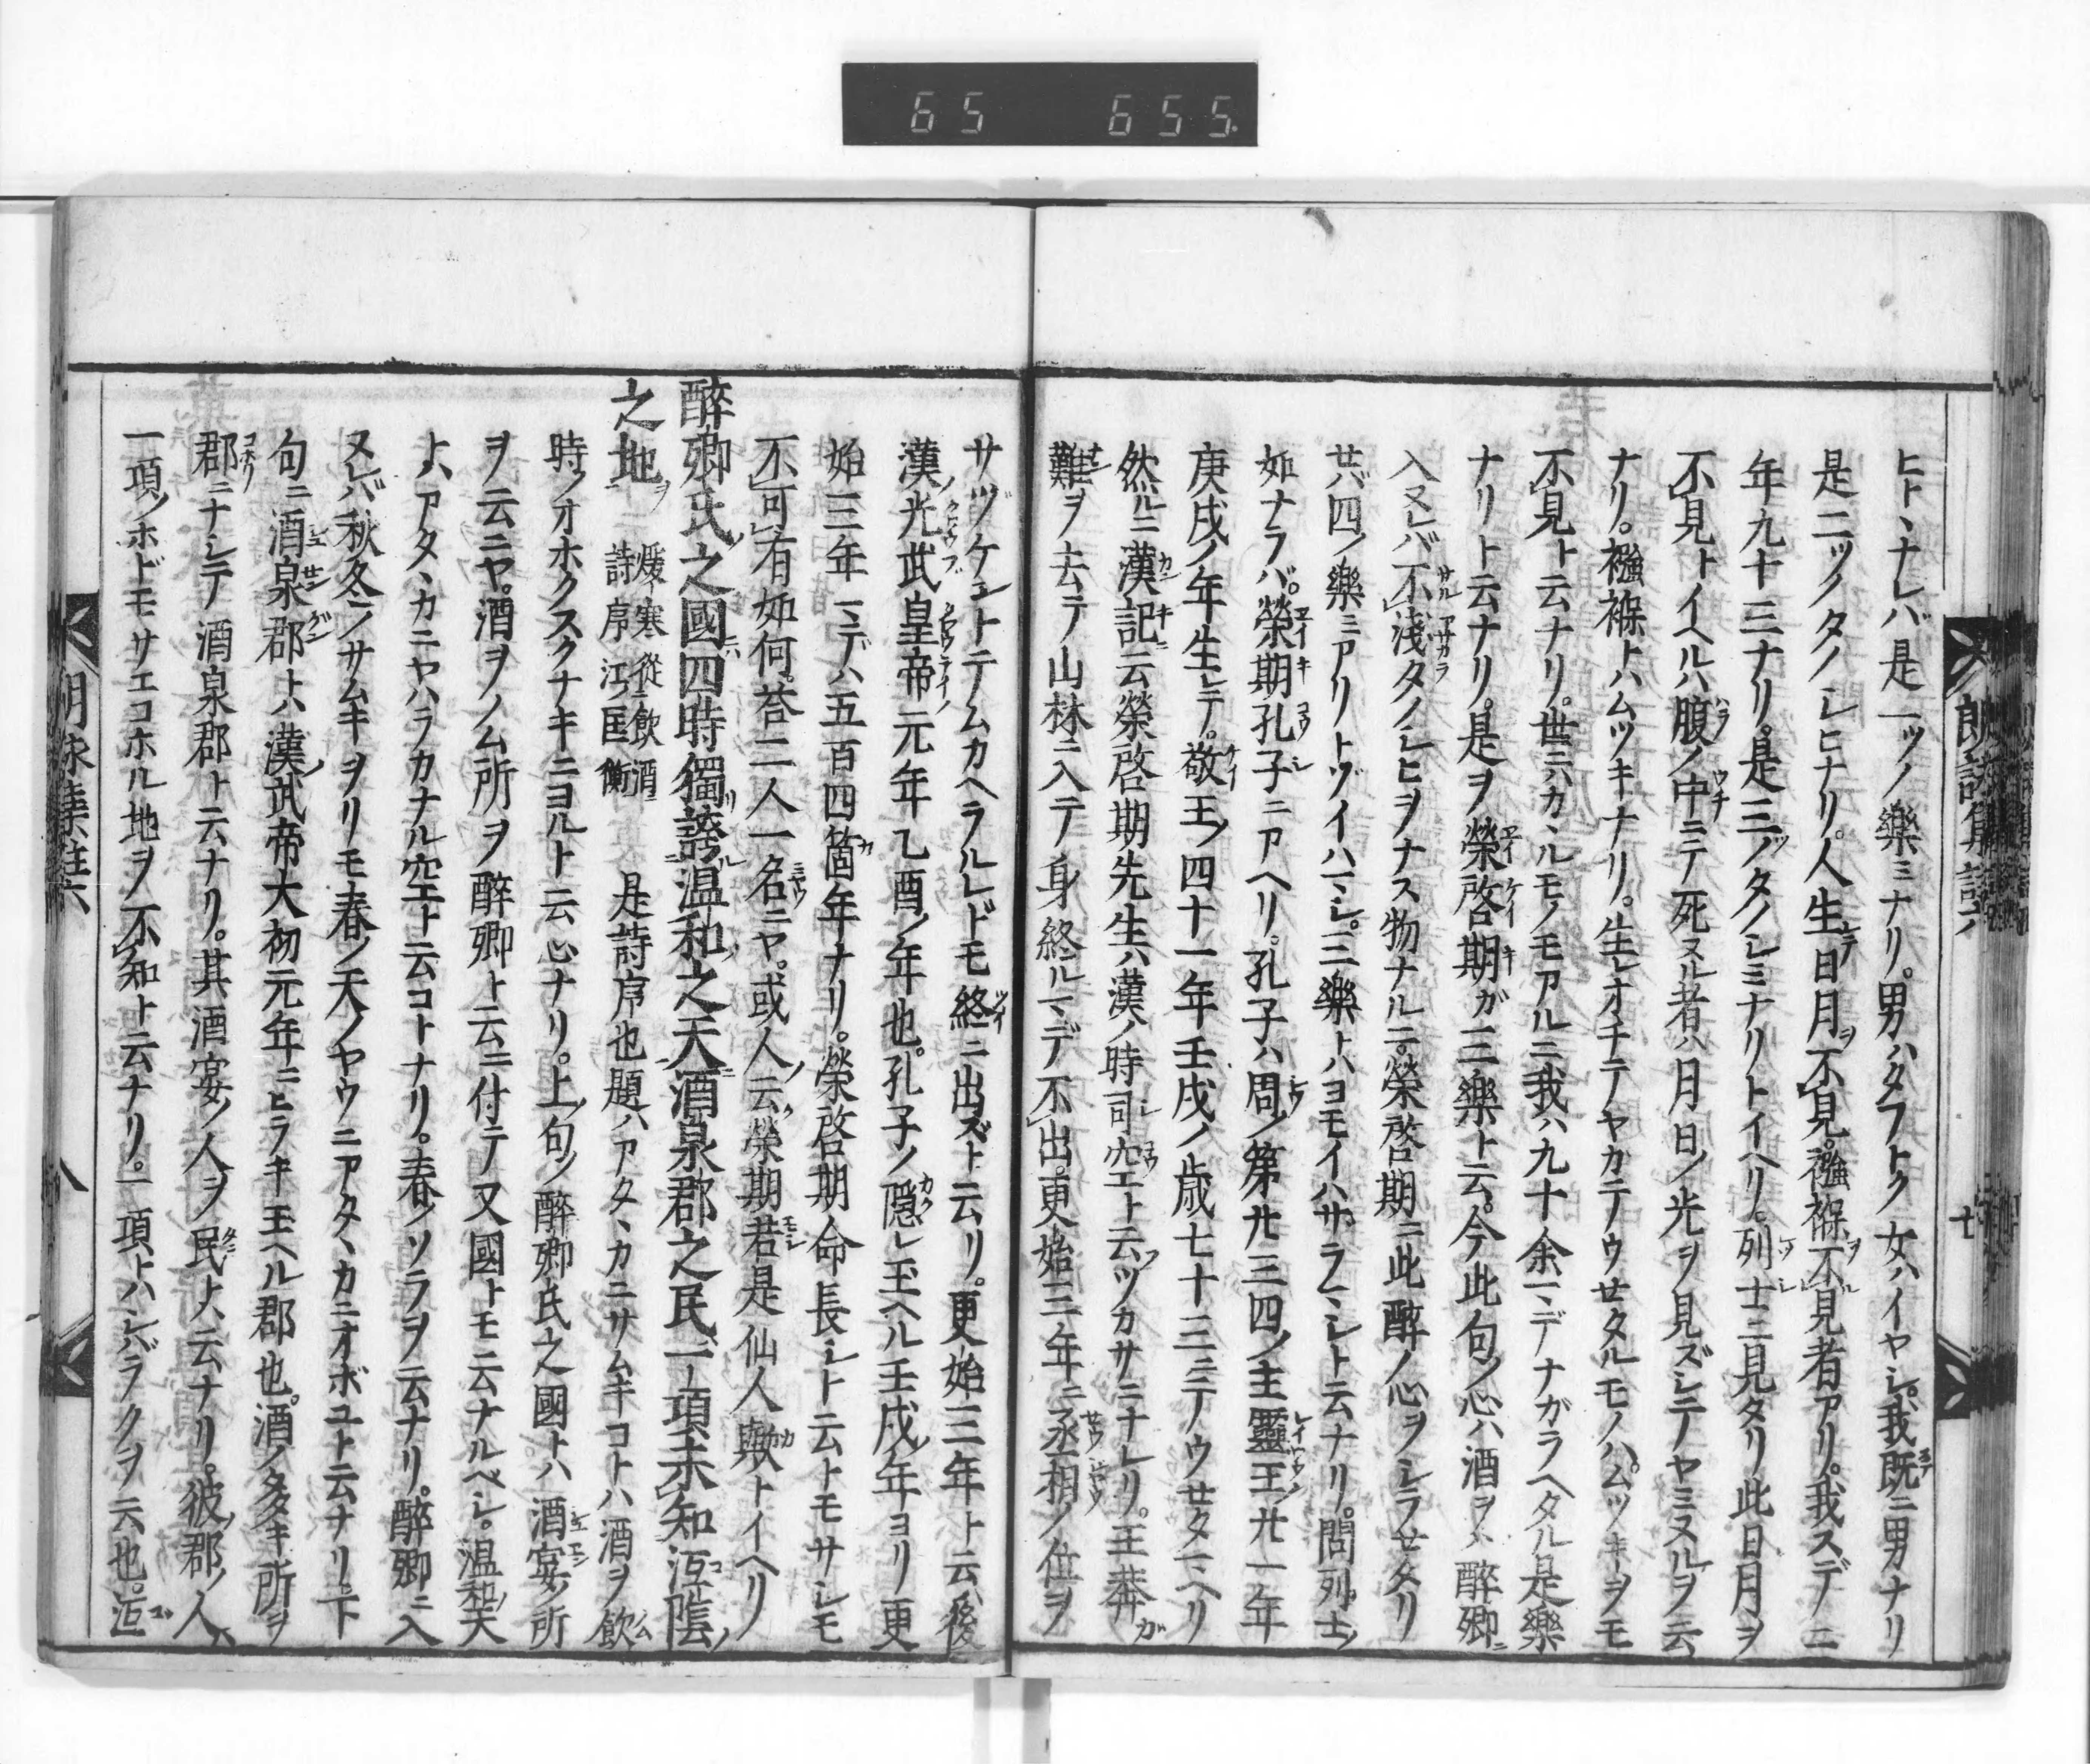 65 655
朗詠集註六 七
ヒトヽナレバ是一ツノ樂ミナリ。男ハタフトク女ハイヤシ。我既ニ男ナリ
是二ツノタノシヒナリ。人生日月ヲ不見。襁褓ヲ不見者アリ。我スデニ
年九十三ナリ。是三ツノタノシミナリトイヘリ。列士ニ見タリ此日月ヲ
不見トイヘルハ腹ノ中ニテ死ヌル者ハ月日ノ光ヲ見ズシテヤミヌルヲ云
ナリ。襁褓トハムツキナリ。生レオチテヤカテウセタルモノハ。ムツキヲモ
不見ト云ナリ。世ニカヽルモノモアルニ我ハ九十余マデナガラヘタル是樂
ナリト云ナリ。是ヲ榮啓期ガ三樂ト云。今此句ノ心ハ酒ヲノミ醉郷ニ
入ヌレバ不淺タノシヒヲナス物ナルニ。榮啓期ニ此醉ノ心ヲシラセタリ
セバ四ノ樂ニアリトゾイハマシ。三樂トハヨモイハサラマシト云ナリ。問列士ノ
如ナラバ。榮期孔子ニアヘリ。孔子ハ周ノ第廿三四ノ主靈王廿一年
庚戌ノ年生レテ。敬王ノ四十一年壬戌ノ歳七十三ニテノウセタマヘリ
然ルニ漢記ニ云榮啓期先生ハ漢ノ時司空ト云ツカサニナレリ。王莽ガ
難ヲ去テ山林ニ入テ身終ルマデ不出。更始三年ニ丞相ノ位ヲ
サヅケントテムカヘラルレドモ終ニ出ズト云リ。更始三年ト云ハ後
漢ノ光武皇帝ノ元年乙酉ノ年也。孔子ノ隱レ玉ヘル壬戌ノ年ヨリ更
始三年マデハ五百四箇年ナリ。榮啓期命長シト云トモサシモ
不可有如何。荅二人一名ニヤ。或人ノ云ク榮期君是仙人歟トイヘリ
醉郷氏之國四時獨誇温和之天酒泉郡之民一項未知沍陰
之地 煖寒從飲酒 詩序 江匡衡 是詩序也題ハアタヽカニサムキコトハ酒ヲ飲
時ノオホクスクナキニヨルト云心ナリ。上ノ句ノ醉郷氏之國トハ酒宴ノ所
ヲ云ニヤ。酒ヲノム所ヲ醉郷ト云ニ付テ又國トモ云ナルベシ。温和ノ天
トハアタヽカニヤハラカナル空ト云コトナリ。春ノソラヲ云ナリ。醉郷ニ入
ヌレバ秋冬ノサムキヲリモ春ノ天ノヤウニアタヽカニオボユト云ナリ下
句ニ酒泉郡トハ漢ノ武帝大初元年ニヒラキ玉ヘル郡也。酒ノ多キ所ヲ
郡ニナシテ酒泉郡ト云ナリ。其酒宴ノ人ヲ民トハ云ナリ。彼郡ノ人ハ
一項ノホドモサエコホル地ヲノ不知ト云ナリ。一項トハシバラクヲ云也。沍
朗詠集註六 八